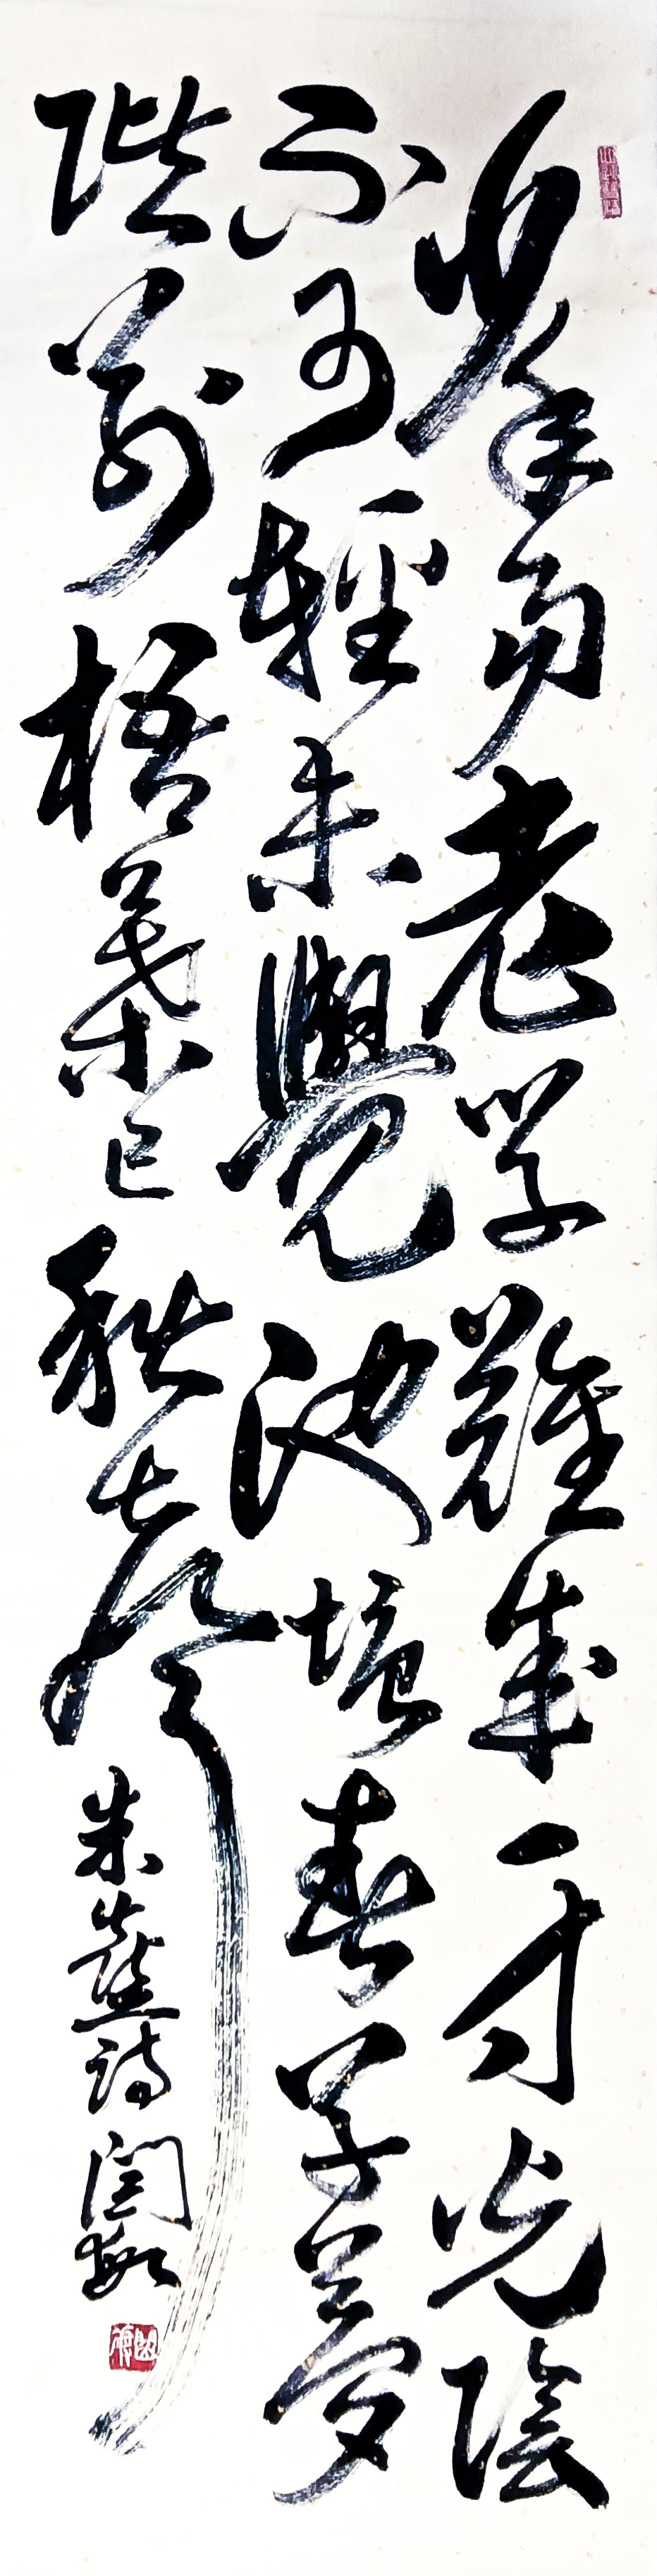 少年易老学難成一寸光陰
不可輕未覺池塘春草夢
階前梧葉已秋聲
朱熹詩